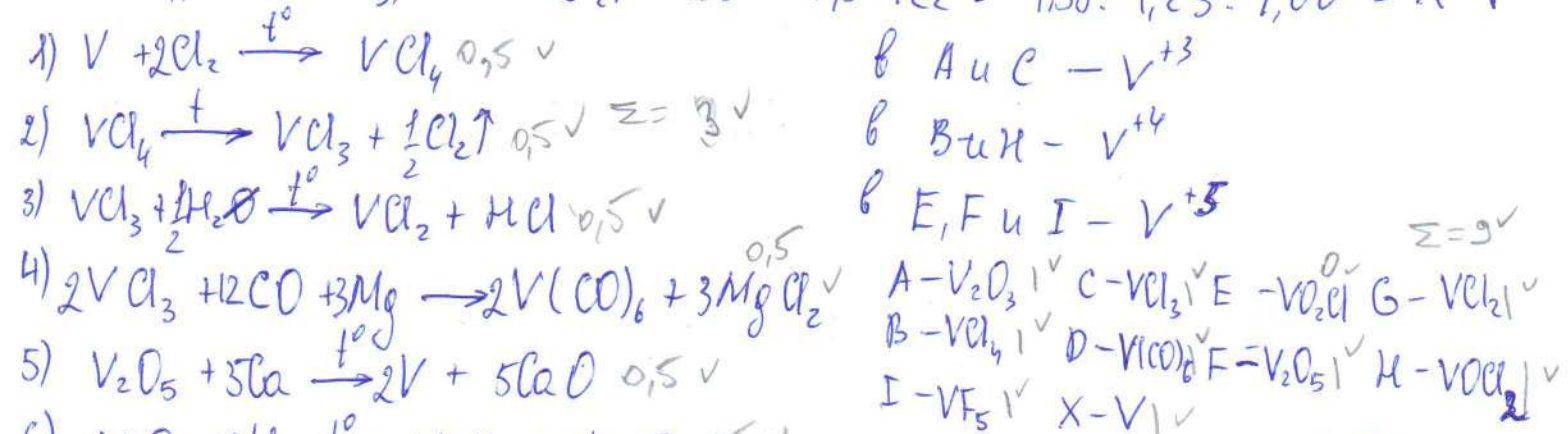 1) V + 2Cl₂ —t°→ VCl₄ 0,5 ✓
2) VCl₄ —t→ VCl₃ + 1/2 Cl₂↑ 0,5 ✓ Σ = 3 ✓
3) VCl₃ + 1/2 H₂ —t°→ VCl₂ + HCl 0,5 ✓
4) 2VCl₃ + 12CO + 3Mg → 2V(CO)₆ + 3MgCl₂ 0,5 ✓
5) V₂O₅ + 5Ca —t°→ 2V + 5CaO 0,5 ✓
в А и С — V⁺³
в В и Н — V⁺⁴
в E, F и I — V⁺⁵
Σ = 9 ✓
A – V₂O₃ 1 ✓ C – VCl₃ 1 ✓ E – VO₂Cl 0 ✓ G – VCl₂ 1 ✓
B – VCl₄ 1 ✓ D – V(CO)₆ 1 ✓ F – V₂O₅ 1 ✓ H – VOCl₂ 1 ✓
I – VF₅ 1 ✓ X – V 1 ✓